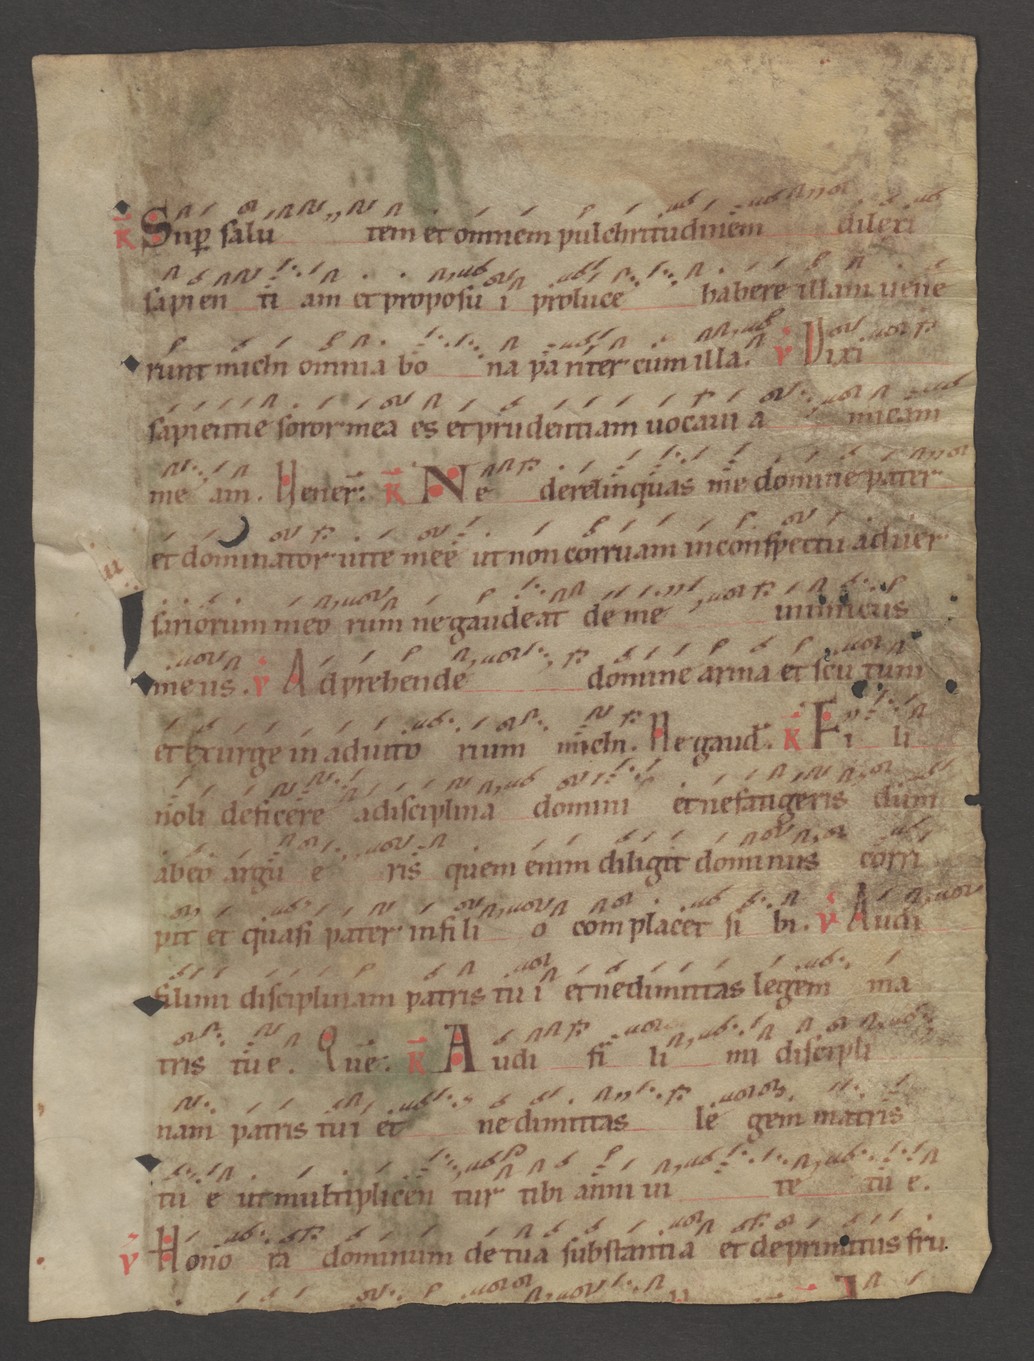 R Sup salu tem et omnem pulchritudinem dilexi
sapien ti am et proposui pro luce habere illam uene
runt michi omnia bo na pa riter cum illa. V Dixi
sapientie soror mea es et prudentiam uocaui a micam
me am. Uener. R Ne derelinquas me domine pater
et dominator uite mee ut non corruam in conspectu aduer
sariorum meo rum ne gaudeat de me inimicus
meus. V Adprehende domine arma et scu tum
et exurge in aduito rium michi. Ne gaud. R Fi li
noli deficere a disciplina domini et ne fatigeris dum
ab eo argu e ris quem enim diligit dominus corri
pit et quasi pater in fili o complacet si bi. V Audi
fili mi disciplinam patris tu i et ne dimittas legem ma
tris tu e. Que. R Audi fi li mi discipli
nam patris tui et ne dimittas le gem matris
tu e ut multiplicen tur tibi anni ui te tu e.
V Hono ra dominum de tua substantia et de primitiis fru